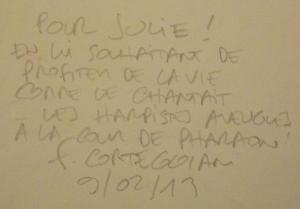 POUR JULIE !
EN LUI SOUHAITANT DE
PROFITER DE LA VIE
COMME LE CHANTAIT
LES HARPISTES AVEUGLES
A LA COUR DE PHARAON !
F. CORTEGGIANI
9/02/13